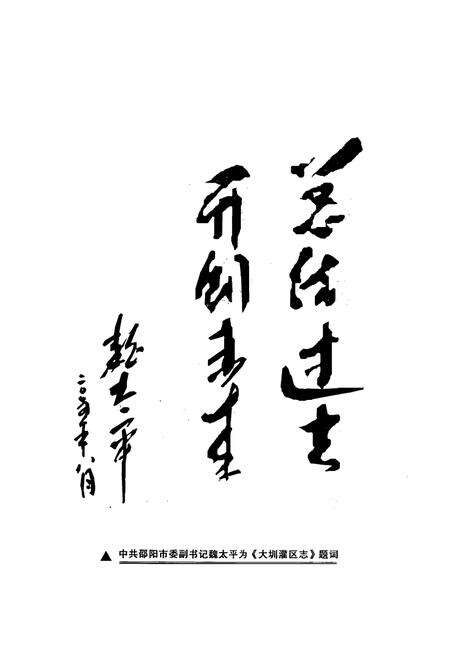 总结过去
开创未来
魏太平
二〇〇五年八月
▲ 中共邵阳市委副书记魏太平为《大圳灌区志》题词